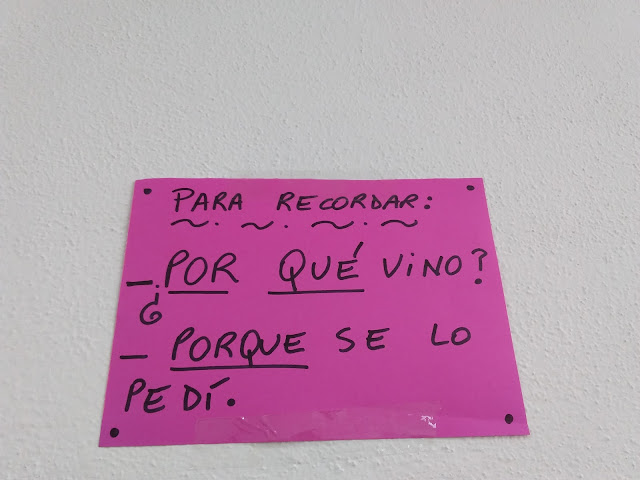 PARA RECORDAR:
– ¿POR QUÉ VINO?
– PORQUE SE LO
PEDÍ.